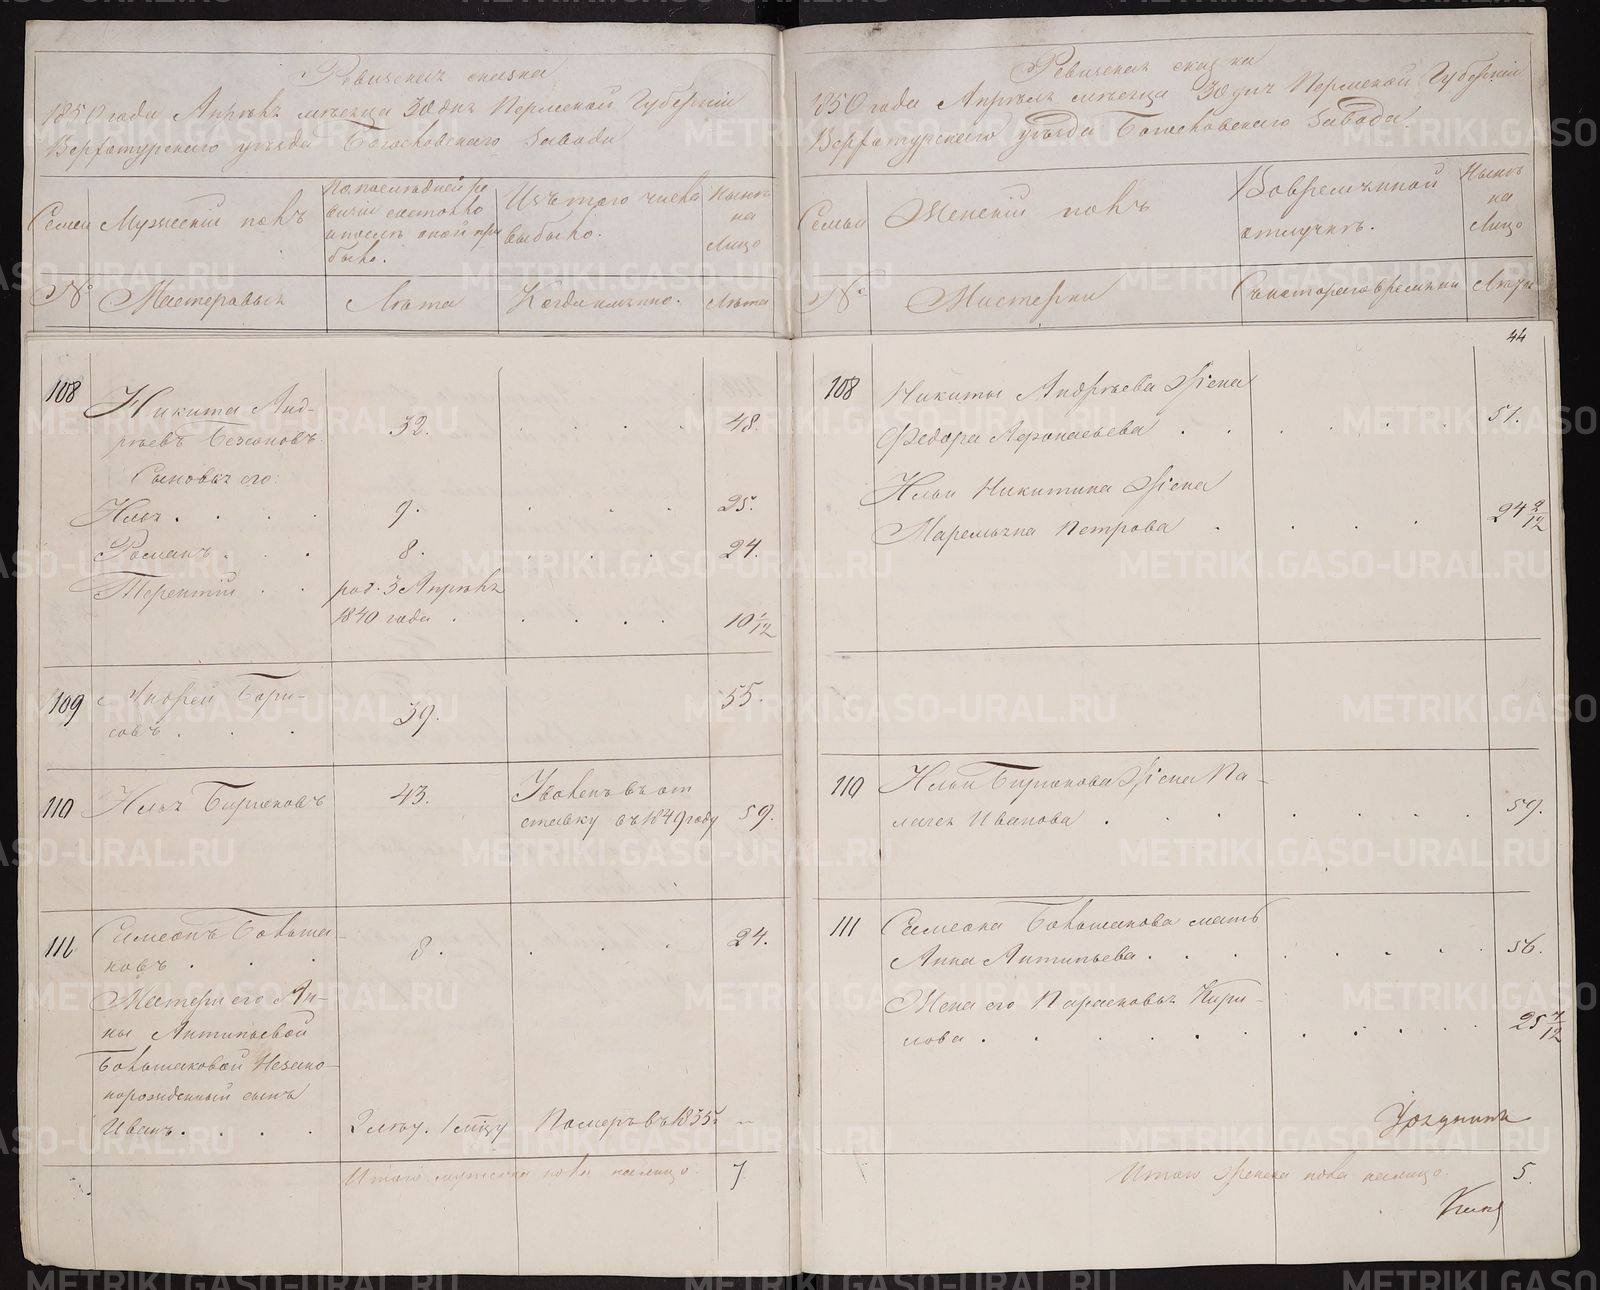 Ревизская сказка
1850 года Апрѣля мѣсяца 30 дня Пермской Губерніи
Верхотурскаго уѣзда Богословскаго Завода
Семьи
Мужескій полъ
По послѣдней ре
визіи состояло
и послѣ оной при
было.
Изъ того числа
выбыло.
Нынѣ
на
Лицо
№
Мастеровыя
Лѣта
Когда именно.
Лѣта
108
Никита Анд-
реевъ Безсоновъ. 32. 48.
Сыновья его:
Илья . . . . 9. 25.
Романъ . . . 8. 24.
Терентій . . род. 3 Апрѣля
1840 года . 10 1/12
109 Андрей Бори-
совъ . . . 39. 55.
110 Илья Бирюковъ 43. Уволенъ въ от
ставку въ 1849 году 59.
111 Симеонъ Большa-
ковъ . . . 8. 24.
Матери его Ан-
ны Антипьевой
Большаковой Незако-
норожденный сынъ
Иванъ . . . . 2 лѣт. 1 мѣцъ Померъ въ 1835. "
Итого мужеска пола налицо. 7.
Ревизская сказка
1850 года Апрѣля мѣсяца 30 дня Пермской Губерніи
Верхотурскаго уѣзда Богословскаго Завода.
Семьи
Женскій полъ
Во временной
отлучкѣ.
Нынѣ
на
Лицо
№
Мастерки
Съ котораго времени
Лѣта
44
108 Никиты Андреева Жена
Федора Афонасьева . . . . . . 51.
Ильи Никитина Жена
Маремьяна Петрова . . . . 24 2/12
110 Ильи Бирюкова Жена Па-
лагея Иванова . . . . . . . 59.
111 Симеона Большакова мать
Анна Антипьева . . . . . . . 56.
Жена его Парасковья Кири-
лова . . . . . . . . . 25 7/12
Итого Женска пола налицо. 5.